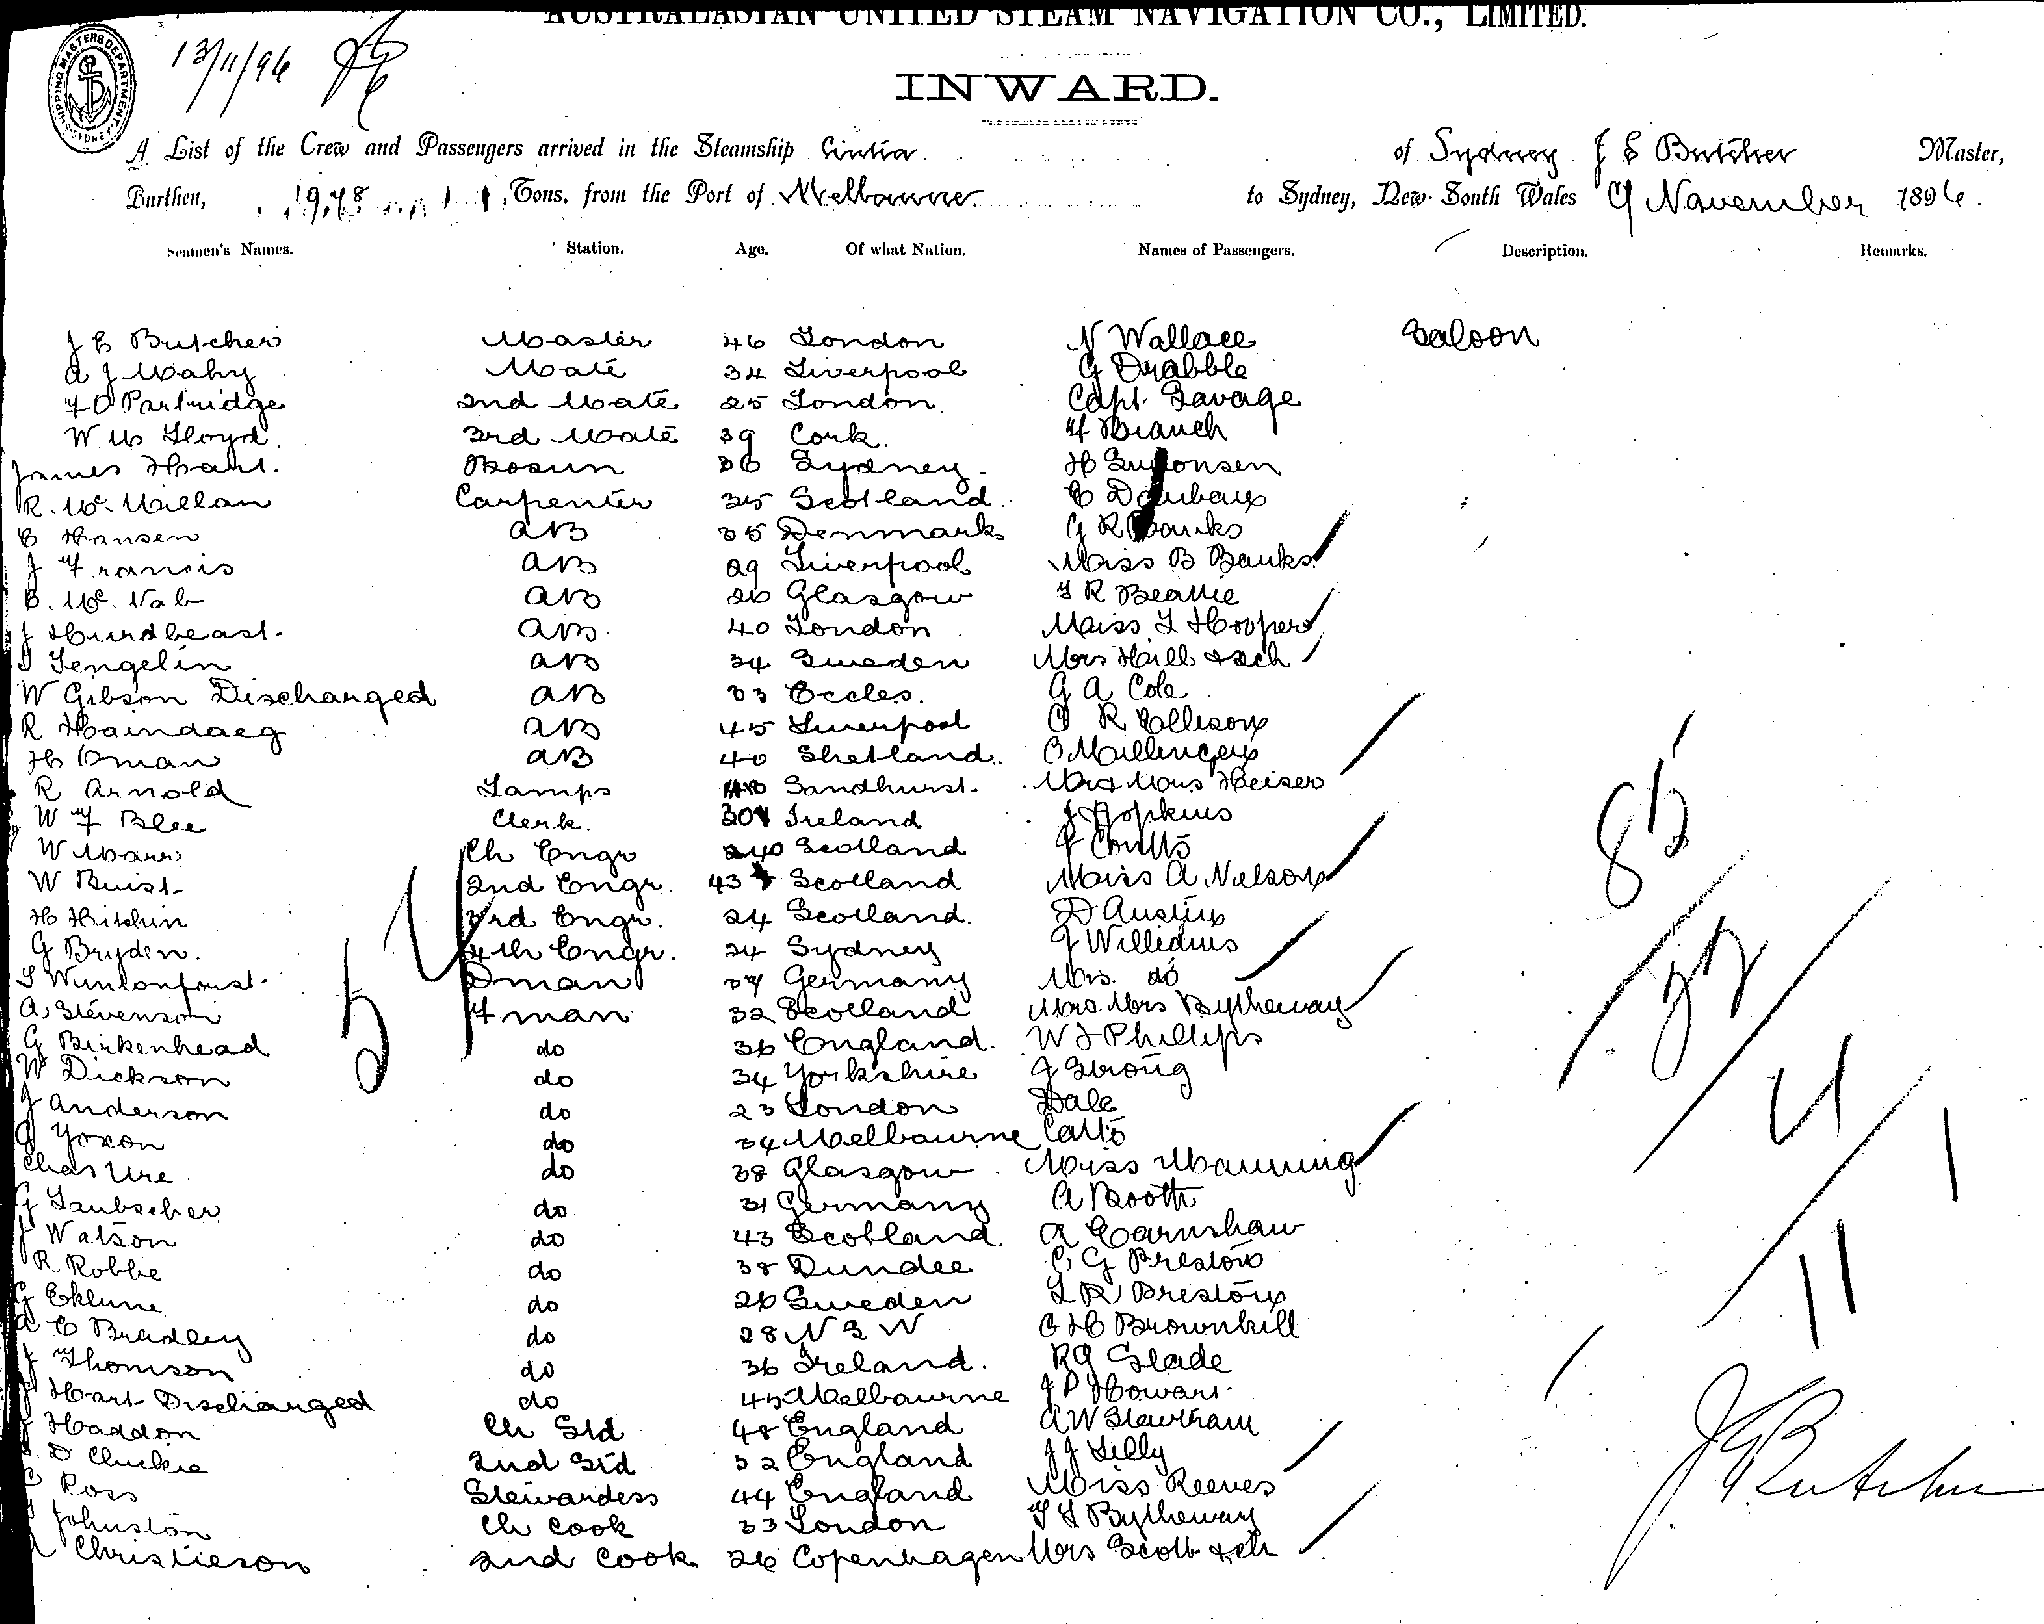 AUSTRALASIAN UNITED STEAM NAVIGATION CO., LIMITED.
SHIPPING MASTERS DEPARTMENT
13/11/96
INWARD.
A List of the Crew and Passengers arrived in the Steamship Cintra of Sydney J E Butcher Master,
Burthen, 1978 Tons. from the Port of Melbourne to Sydney, New South Wales 9 November 1896.
Seamen's Names. Station. Age. Of what Nation. Names of Passengers. Description. Remarks.
J E Butcher Master 46 London N Wallace Saloon
A J Mahy Mate 34 Liverpool G Drabble
F O Partridge 2nd Mate 25 London Capt. Savage
W Mc Lloyd. 3rd Mate 39 Cork. F Branch
James Hart. Bosun 36 Sydney H
R. Mc Millan Carpenter 35 Scotland. E
C Hansen AB 35 Denmark G R Banks
J Francis AB 29 Liverpool Miss B Banks
B. Mc Nab AB 26 Glasgow F R Beattie
J Hurdbeast. AB 40 London Miss L Hooper
Tengelin AB 34 Sweden Mrs Hall & ch
W Gibson Discharged AB 33 Eccles. G A Cole
R Haindaeg AB 45 Liverpool C R Ellison
H Oman AB 40 Shetland. O Mellinger
R Arnold Lamps 40 Sandhurst. Mr & Mrs Heiser
W F Blee Clerk. 30 Ireland J Hopkins
W Marr Ch Engr 40 Scotland J Coutts
W Buist 2nd Engr. 43 Scotland Miss A Nelson
H Hitchin 3rd Engr. 24 Scotland. D Austin
G Bryden. 4th Engr. 24 Sydney J Williams
Dman 37 Germany Mrs. do
A Stevenson Fman 32 Scotland Mr & Mrs Bytheway
G Birkenhead do 36 England. W J Phillips
W Dickson do 34 Yorkshire J Strong
J Anderson do 23 London Dale
J Yoxon do 34 Melbourne Catto
Chas Ure do 38 Glasgow Miss Manning
G Laubscher do 31 Germany A Booth
J Watson do 43 Scotland. A Earnshaw
R Robbe do 38 Dundee C G Preston
G Eklune do 26 Sweden L R Preston
A E Bradley do 28 N S W C H Brownhill
J Thomson do 36 Ireland. R G Slade
J Hart Discharged do 45 Melbourne J P Howart
J Haddon Ch Std 48 England A W Stawtham
D Cluckie 2nd Std 32 England J J Lilly
C Ross Stewardess 44 England Miss Reeves
Johnston Ch Cook 33 London F L Bytheway
Christieson 2nd Cook 26 Copenhagen Mrs Scott & ch
54
85
32
4
1
11
J E Butcher